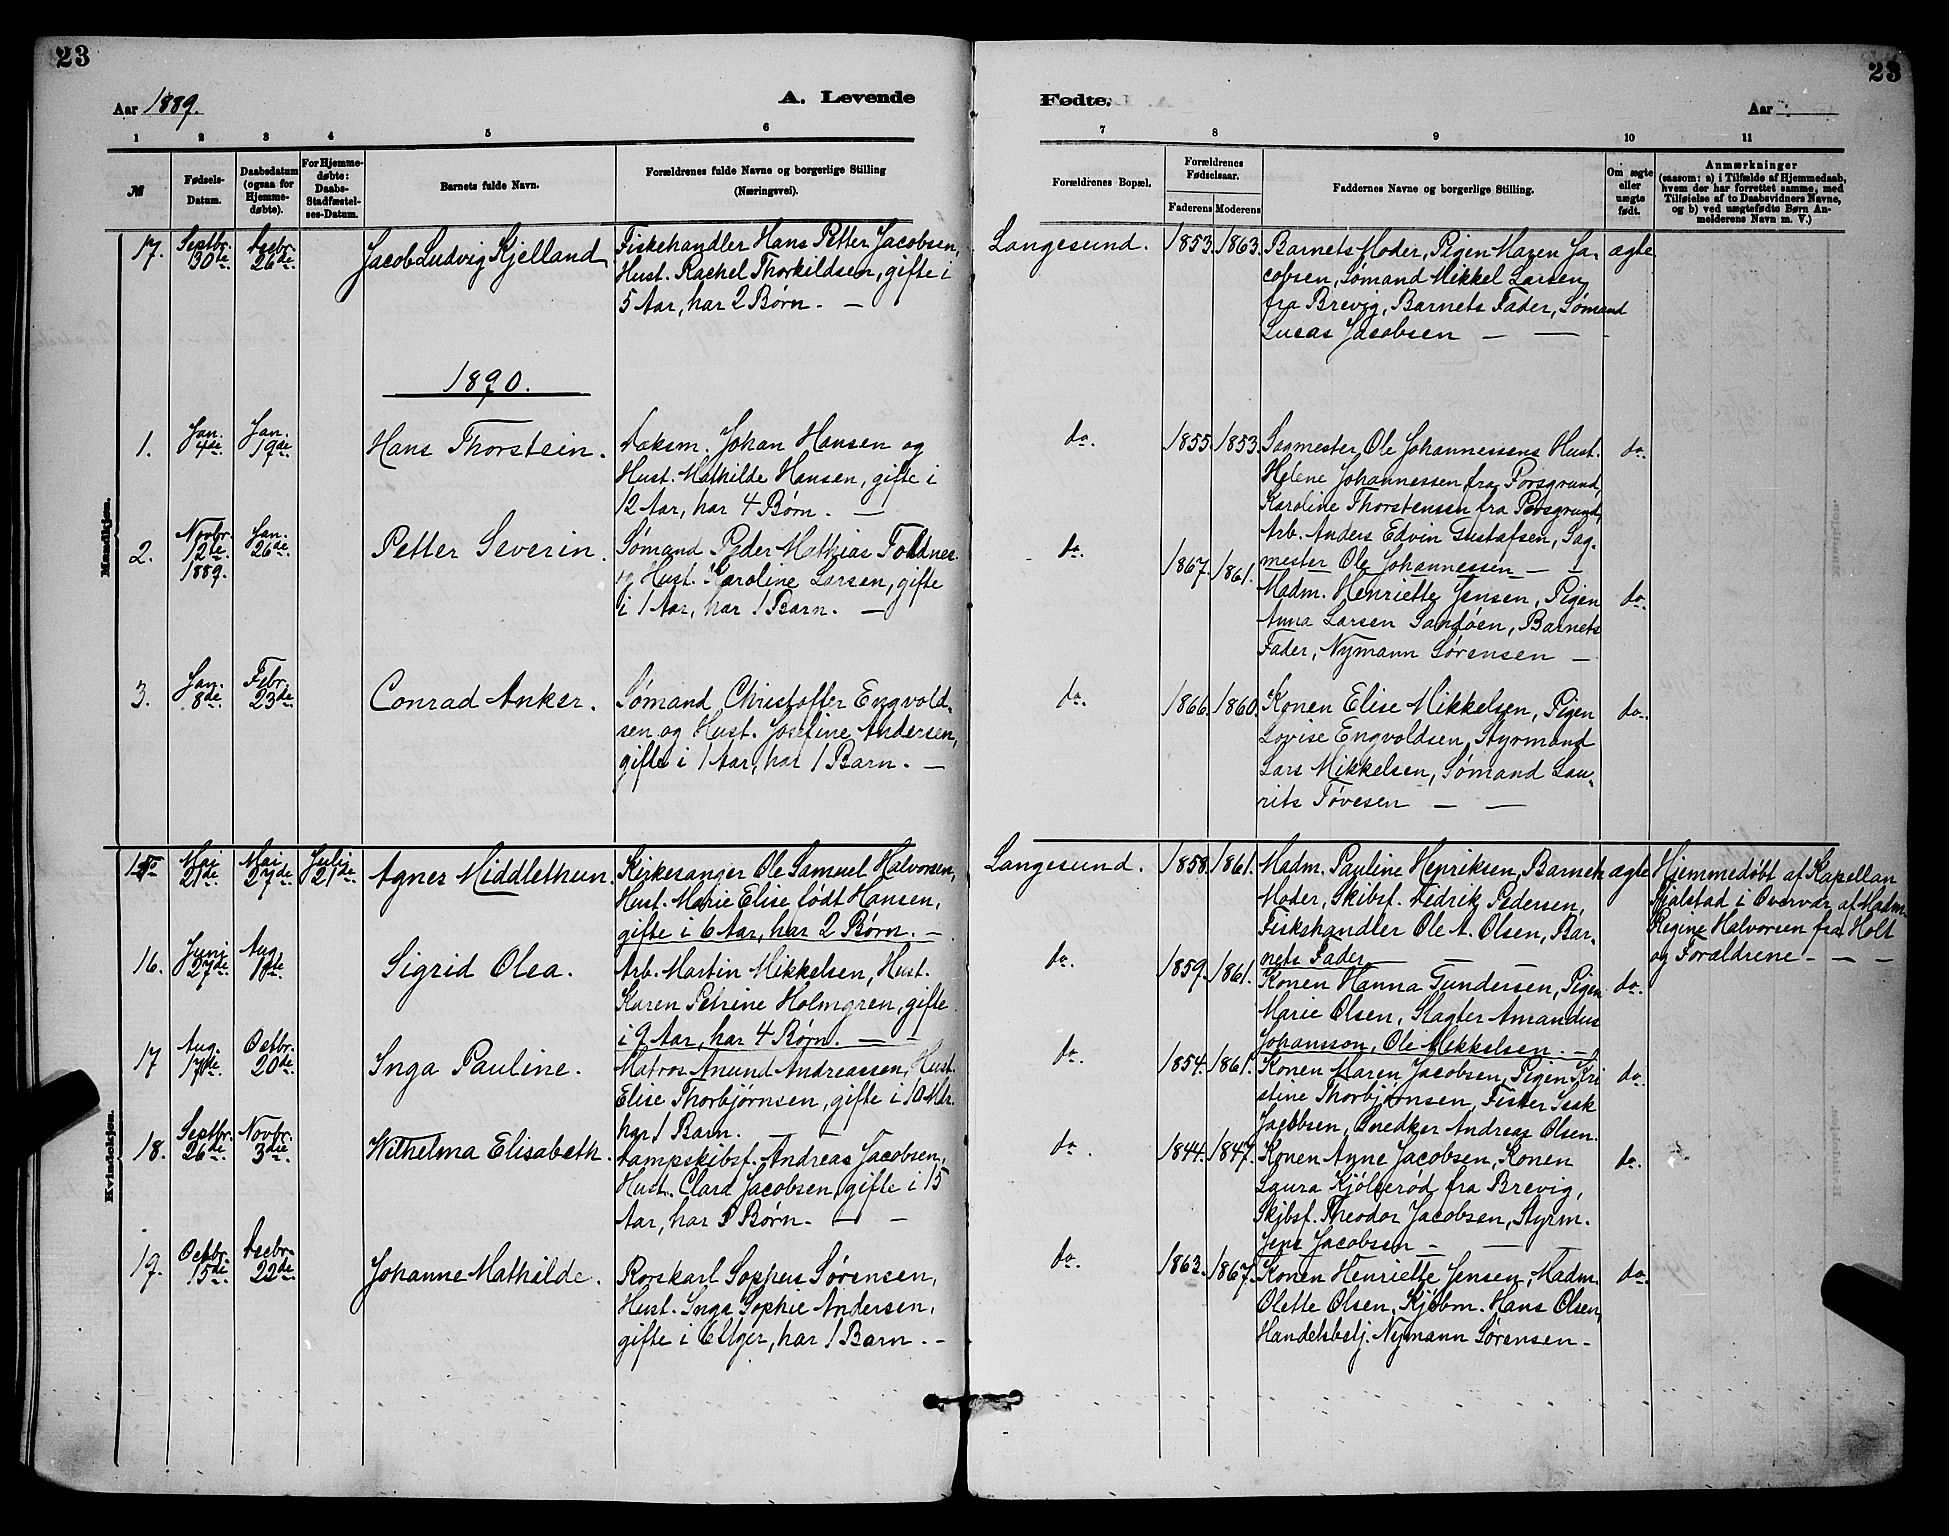 23
23
Aar 1889.
A. Levende
Fødte.
Aar
1 2 3 4 5 6
7 8 9 10 11
№
Fødsels-
Datum.
Daabsdatum
(ogsaa for
Hjemme-
døbte).
For Hjemme-
døbte:
Daabs-
Stadfæstel-
ses-Datum.
Barnets fulde Navn.
Forældrenes fulde Navne og borgerlige Stilling
(Næringsvei).
Forældrenes Bopæl.
Forældrenes
Fødselsaar.
Faderens Moderens
Faddernes Navne og borgerlige Stilling.
Om ægte
eller
uægte
født.
Anmærkninger
(saasom: a) i Tilfælde af Hjemmedaab,
hvem der har forrettet samme, med
Tilføielse af to Daabsvidners Navne,
og b) ved uægtefødte Børn An-
melderens Navn m. V.)
Mandkjøn.
17.
Septbr.
30te
Decbr.
26de
Jacob Ludvig Kjelland
Fiskehandler Hans Petter Jacobsen,
Hust. Rachel Thorkildsen, gifte i
5 Aar, har 2 Børn. —
Langesund.
1853. 1863.
Barnets Moder, Pigen Maren Ja-
cobsen, Sømand Mikkel Larsen
fra Brevig, Barnets Fader, Sømand
Lucas Jacobsen — —
ægte
1890.
1.
Jan.
4de
Jan.
19de
Hans Thorstein.
Dæksm. Johan Hansen og
Hust. Mathilde Hansen, gifte i
12 Aar, har 4 Børn. —
do.
1855. 1853.
Sagmester Ole Johannessens Hust.
Helene Johannessen fra Porsgrund,
Karoline Thorstensen fra Porsgrund,
Arb. Anders Edvin Gustafsen, Sag-
mester Ole Johannessen — —
do.
2.
Novbr.
12te
1889.
Jan.
26de
Petter Severin.
Sømand Peder Mathias Foldnes
og Hust. Karoline Larsen, gifte
i 1 Aar, har 1 Barn. —
do.
1867. 1861.
Madm. Henriette Jensen, Pigen
Anna Larsen Sandøen, Barnets
Fader, Nymann Sørensen —
do.
3.
Jan.
8de
Febr.
23de
Conrad Anker.
Sømand Christoffer Engvold-
sen og Hust. Josefine Andersen,
gifte i 1 Aar, har 1 Barn. —
do.
1866. 1860.
Konen Elise Mikkelsen, Pigen
Lovise Engvoldsen, Styrmand
Lars Mikkelsen, Sømand Lau-
rits Tøvesen — —
do.
Kvindekjøn.
15
Mai
21de
Mai
27de
Juli
21de
Agnes Middlethun.
Kirkesanger Ole Samuel Halvorsen,
Hust. Marie Elise født Hansen,
gifte i 6 Aar, har 2 Børn. —
Langesund.
1858. 1861.
Madm. Pauline Henriksen, Barnets
Moder, Skibsf. Fredrik Pedersen,
Fiskehandler Ole A. Olsen, Bar-
nets Fader — — —
ægte
Hjemmedøbt af Kapellan
Hjalstad i Overvær af Madm.
Regine Halvorsen fra Holt
og Forældrene — — —
16.
Juni
27de
Aug.
Sigrid Olea.
Arb. Martin Mikkelsen, Hust.
Karen Petrine Holmgren, gifte
i 9 Aar, har 4 Børn. — —
do.
1859. 1861.
Konen Hanna Gundersen, Pigen
Marie Olsen, Slagter Amandus
Johansson, Ole Mikkelsen. —
do.
17
Aug.
17de
Octbr.
20de
Inga Pauline.
Matros Anund Andreassen, Hust.
Elise Thorbjørnsen, gifte i 10 Mdr.
har 1 Barn. — —
do.
1854. 1861.
Konen Maren Jacobsen, Pigen Kri
stine Thorbjørnsen, Fisker Isak
Jacobsen, Snedker Andreas Olsen.
do.
18.
Septbr.
26de
Novbr.
3die
Wilhelma Elisabeth.
Dampskibsf. Andreas Jacobsen,
Hust. Clara Jacobsen, gifte i 15
Aar, har Børn. — —
do.
1844. 1847.
Konen Anne Jacobsen, Konen
Laura Kjølserød fra Brevig,
Skibsf. Theodor Jacobsen, Styrm.
Jens Jacobsen — — —
do.
19.
Octbr.
15de
Decbr.
22de
Johanne Mathilde.
Rorskarl Sophus Sørensen,
Hust. Inga Sophie Andersen,
gifte i Uger, har 1 Barn. —
do.
1863. 1867.
Konen Henriette Jensen, Madm.
Olette Olsen, Kjøbm. Hans Olsen,
Handelsbstj. Nymann Sørensen —
do.